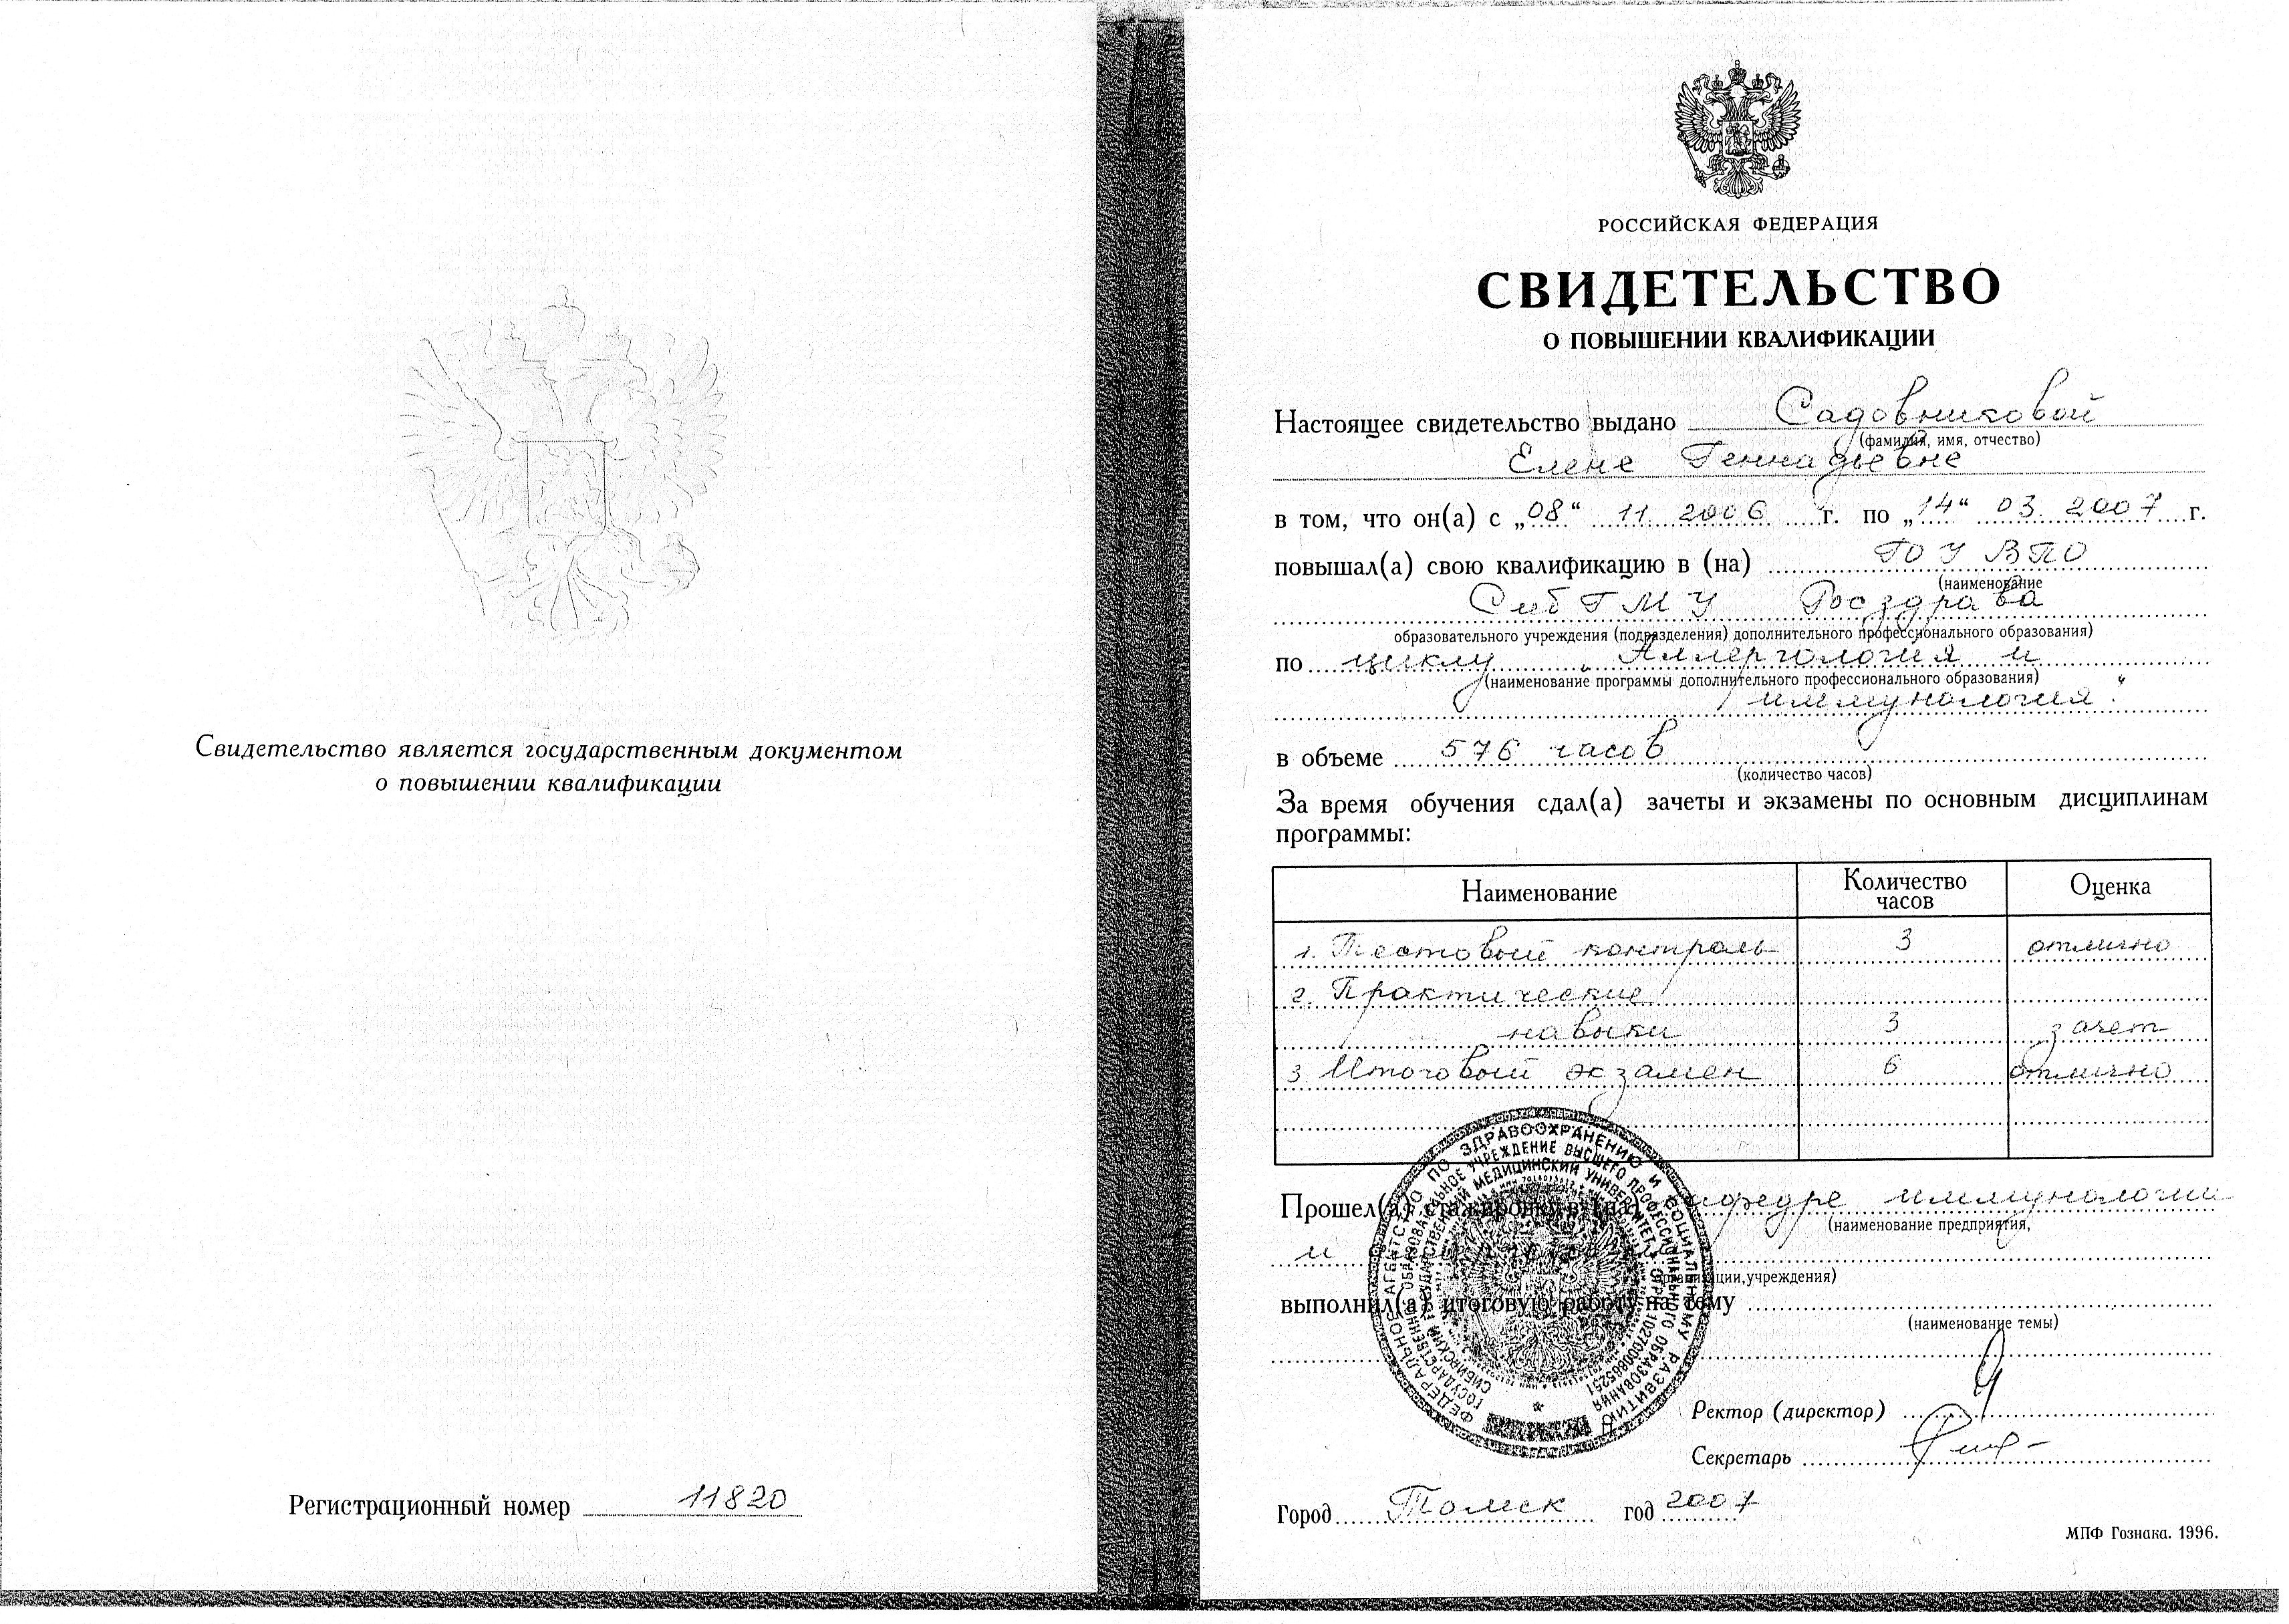 Свидетельство является государственным документом
о повышении квалификации
Регистрационный номер 11820
РОССИЙСКАЯ ФЕДЕРАЦИЯ
СВИДЕТЕЛЬСТВО
О ПОВЫШЕНИИ КВАЛИФИКАЦИИ
Настоящее свидетельство выдано Садовниковой
(фамилия, имя, отчество)
Елене Геннадьевне
в том, что он(а) с „08“ 11 2006 г. по „14“ 03 2007 г.
повышал(а) свою квалификацию в (на) ГОУ ВПО
(наименование
СибГМУ Росздрава
образовательного учреждения (подразделения) дополнительного профессионального образования)
по циклу „Аллергология и
(наименование программы дополнительного профессионального образования)
иммунология“
в объеме 576 часов
(количество часов)
За время обучения сдал(а) зачеты и экзамены по основным дисциплинам
программы:
Наименование Количество часов Оценка
1. Тестовый контроль 3 отлично
2. Практические
навыки 3 зачет
3. Итоговый экзамен 6 отлично
Прошел(а) стажировку в (на) кафедре иммунологии
(наименование предприятия,
и
организации, учреждения)
выполнил(а) итоговую работу на тему
(наименование темы)
ФЕДЕРАЛЬНОЕ АГЕНТСТВО ПО ЗДРАВООХРАНЕНИЮ И СОЦИАЛЬНОМУ РАЗВИТИЮ
ГОСУДАРСТВЕННОЕ ОБРАЗОВАТЕЛЬНОЕ УЧРЕЖДЕНИЕ ВЫСШЕГО ПРОФЕССИОНАЛЬНОГО ОБРАЗОВАНИЯ
СИБИРСКИЙ ГОСУДАРСТВЕННЫЙ МЕДИЦИНСКИЙ УНИВЕРСИТЕТ
Ректор (директор)
Секретарь
Город Томск год 2007
МПФ Гознака. 1996.